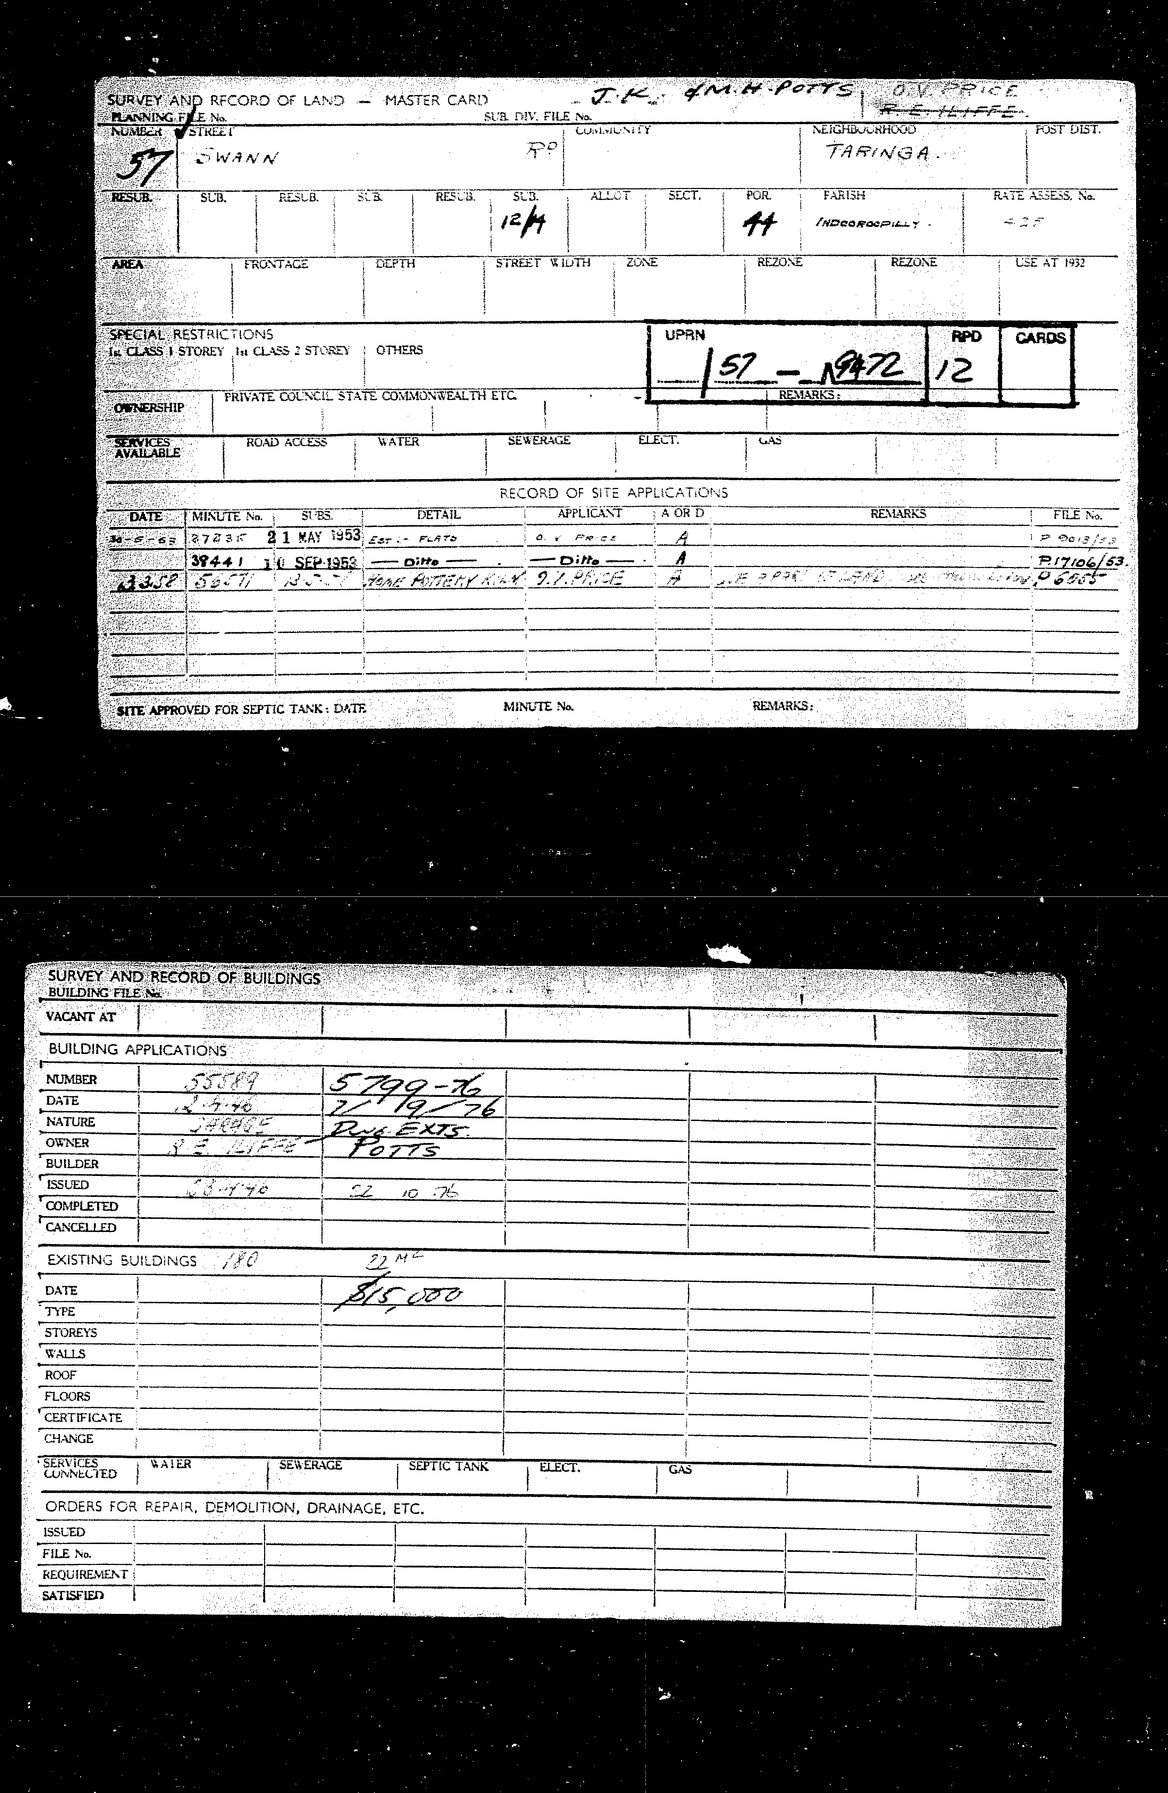 SURVEY AND RECORD OF LAND — MASTER CARD J.K. & M.H. POTTS O.V. PRICE
PLANNING FILE No. SUB. DIV. FILE No. R. E. ILIFFE.
NUMBER STREET COMMUNITY NEIGHBOURHOOD POST DIST.
57 SWANN RD TARINGA.
RESUB. SUB. RESUB. SUB. RESUB. SUB. ALLOT SECT. POR. PARISH RATE ASSESS. No.
12/14 44 INDOOROOPILLY.
AREA FRONTAGE DEPTH STREET WIDTH ZONE REZONE REZONE USE AT 1932
SPECIAL RESTRICTIONS UPRN RPD CARDS
1st CLASS 1 STOREY 1st CLASS 2 STOREY OTHERS
/57 — 9472 12
OWNERSHIP PRIVATE COUNCIL STATE COMMONWEALTH ETC. REMARKS:
SERVICES AVAILABLE ROAD ACCESS WATER SEWERAGE ELECT. GAS
RECORD OF SITE APPLICATIONS
DATE MINUTE No. SUBS. DETAIL APPLICANT A OR D REMARKS FILE No.
27235 21 MAY 1953 EST :- FLATS O. V PRICE A P 9013/53
38441 10 SEP 1953 — Ditto — — Ditto — A P.17106/53.
56571 HOME POTTERY KILN O.V. PRICE A P 6055
SITE APPROVED FOR SEPTIC TANK: DATE MINUTE No. REMARKS:
SURVEY AND RECORD OF BUILDINGS
BUILDING FILE No.
VACANT AT
BUILDING APPLICATIONS
NUMBER 55589 5799-76
DATE 2-4-46 7/ 9/76
NATURE GARAGE DWG. EXTS.
OWNER R E ILIFFE POTTS
BUILDER
ISSUED 23-4-46 22 10 76
COMPLETED
CANCELLED
EXISTING BUILDINGS 180 22 M2
DATE $15,000
TYPE
STOREYS
WALLS
ROOF
FLOORS
CERTIFICATE
CHANGE
SERVICES CONNECTED WATER SEWERAGE SEPTIC TANK ELECT. GAS
ORDERS FOR REPAIR, DEMOLITION, DRAINAGE, ETC.
ISSUED
FILE No.
REQUIREMENT
SATISFIED